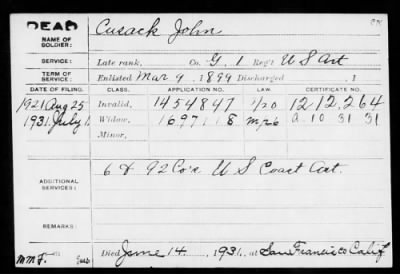 DEAD
NAME OF SOLDIER: Cusack John
SERVICE: Late rank, Co. G. 1 Reg't U S Art
TERM OF SERVICE: Enlisted Mar 9, 1899 Discharged , 1
DATE OF FILING. CLASS. APPLICATION NO. LAW. CERTIFICATE NO.
1921 Aug 25 Invalid, 1454847 1/20 1212,264
1931 July 1 Widow, 1697118 a 10 31 31
Minor,
ADDITIONAL SERVICES: 6 & 92 Co's U S Coast Art.
REMARKS:
Died June 14, 1931, at San Francisco Calif